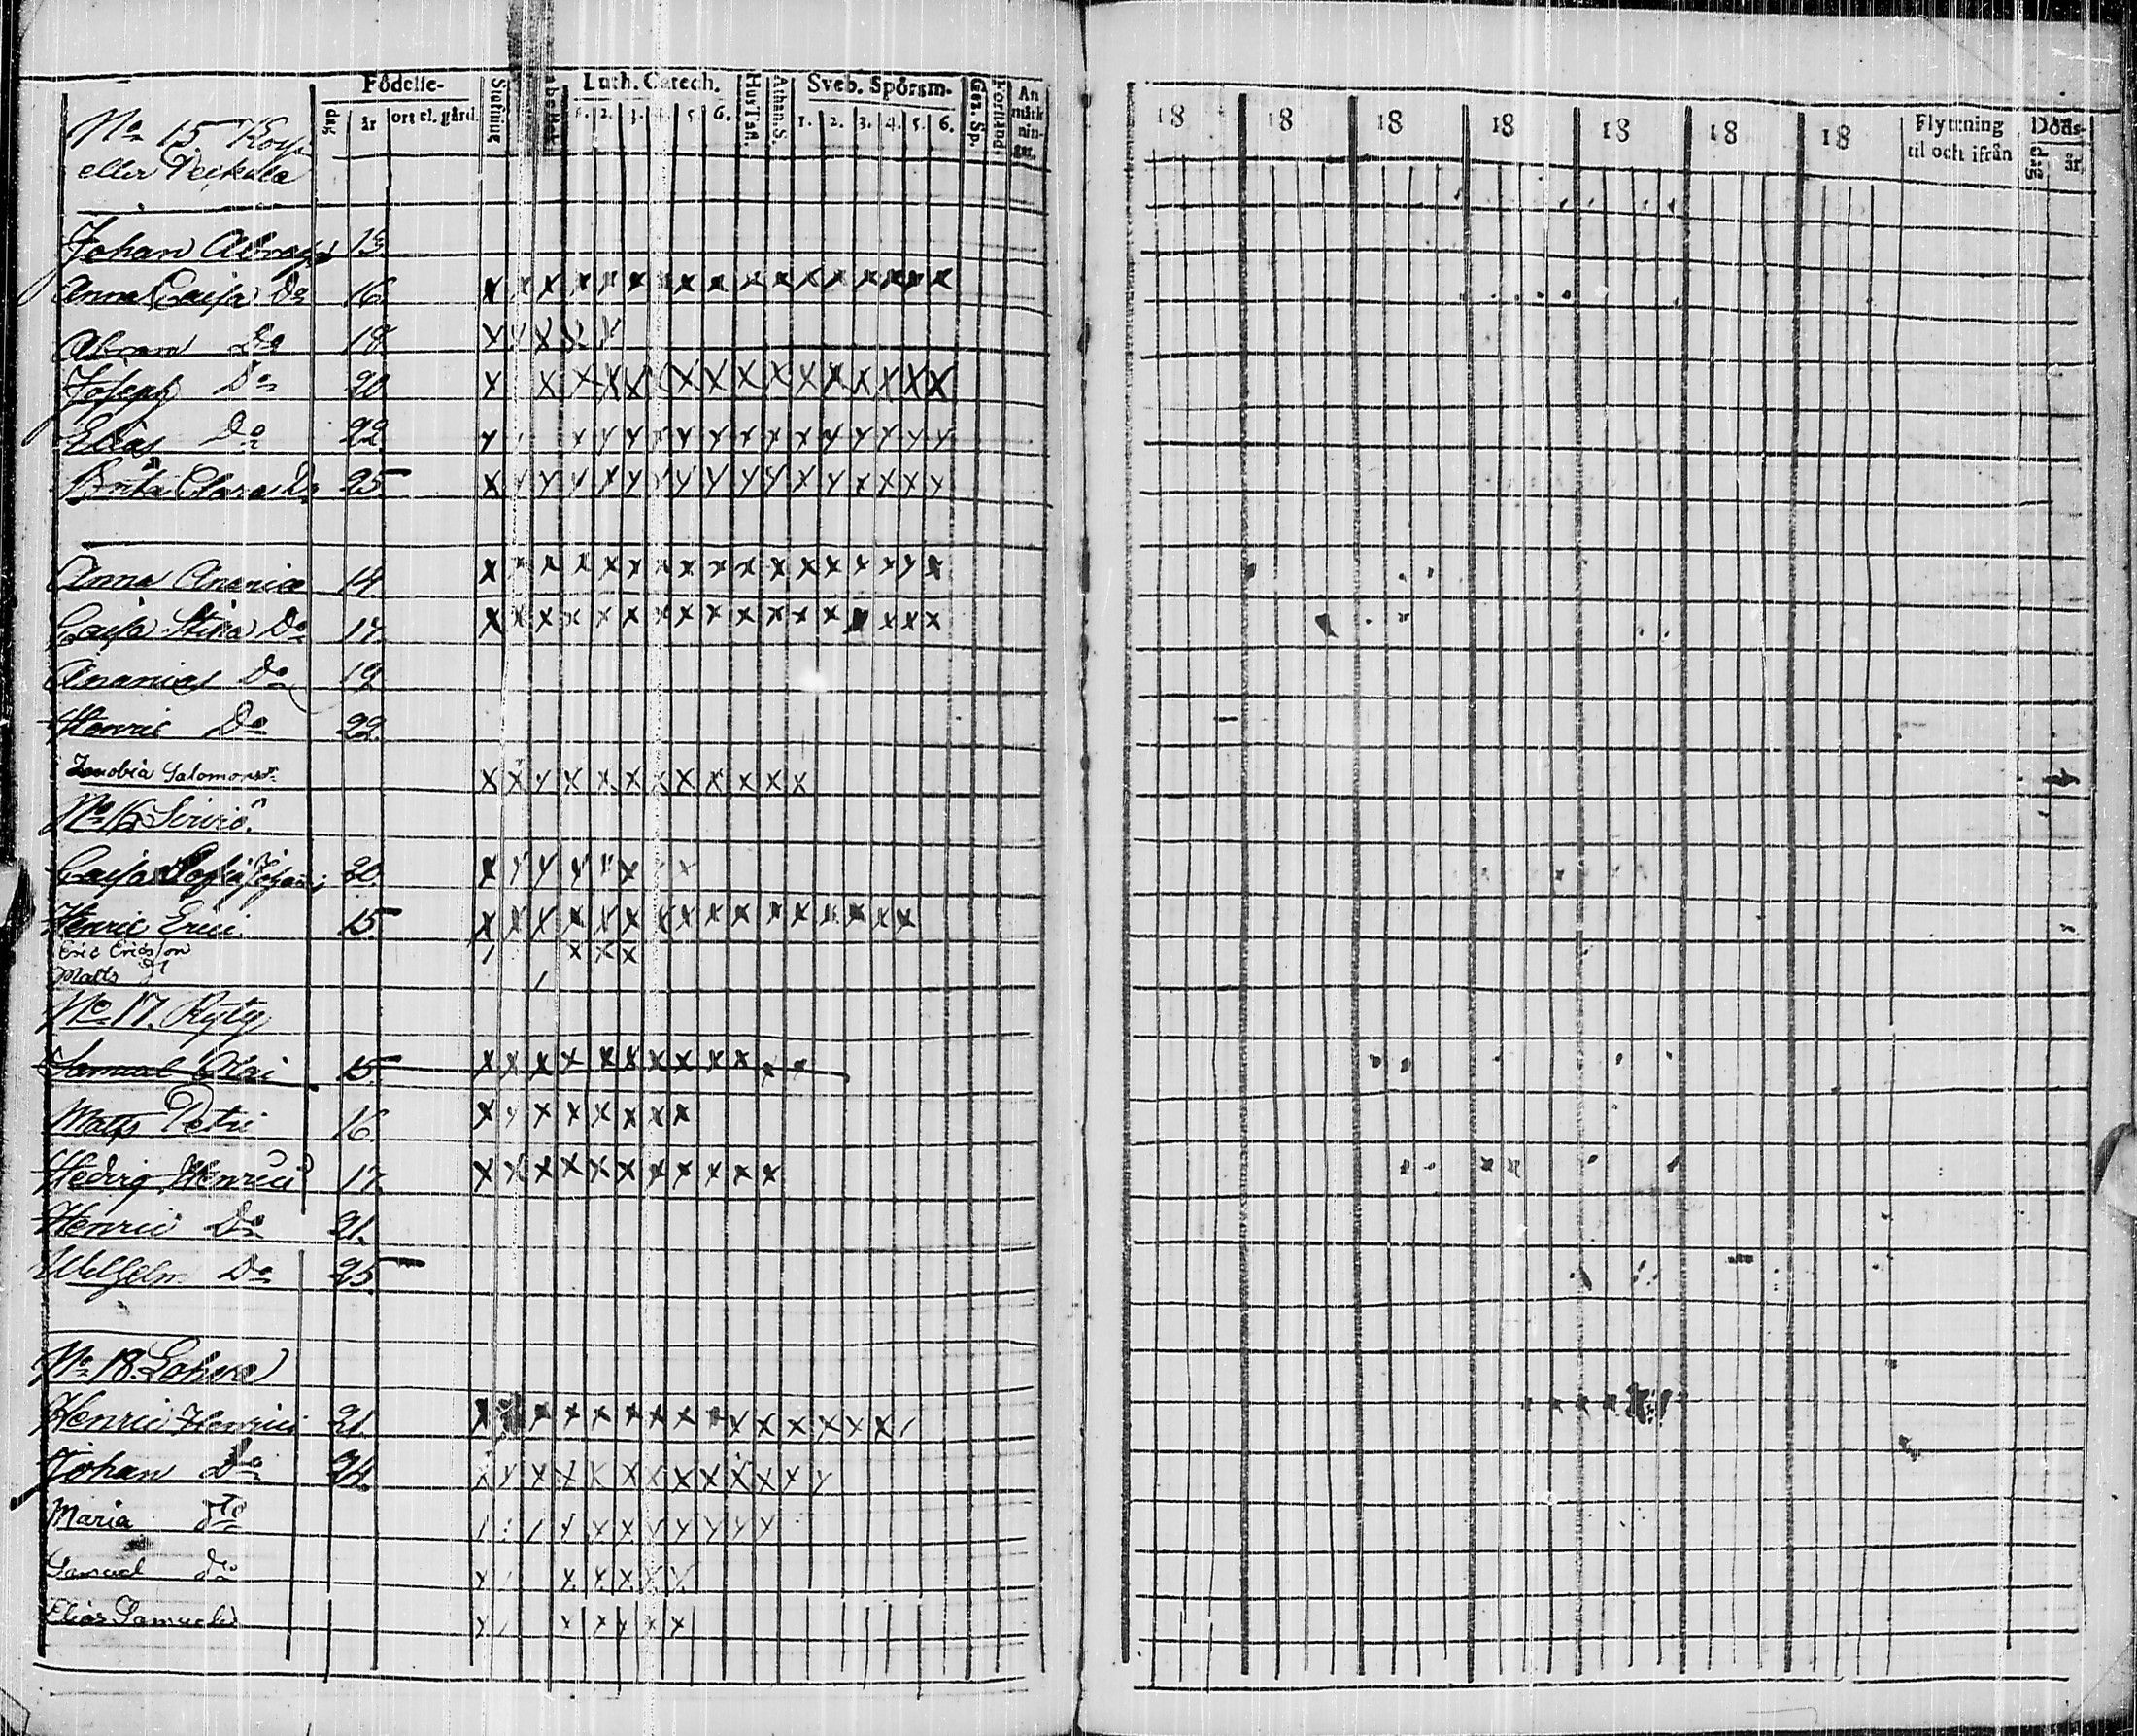 Födelse-
dag
år
ort el. gård.
Stafning
Luth. Catech.
1. 2. 3. 4. 5. 6.
Hus Tafl.
Athan. S.
Sveb. Spörsm.
1. 2. 3. 4. 5. 6.
Gez. Sp.
Förstånd
An
märk
nin-
gar.
18 18 18 18 18 18 18
Flyttning
til och ifrån
Döds-
dag
år.
No 15
eller Peckala
Johan 13.
Anna Caisa Do 16.
Abram Do 18.
Joseph Do 20.
Elias Do 22.
Brita Clara Do 25.
Anna Ananiæ 14.
Caisa Stina Do 17.
Ananias Do 19.
Henric Do 22.
Zenobia Salomonsdr
No 16 Sirviö.
Caisa Sofia 20.
Henric Erici 15.
Eric Ericsson
Matts Do
No 17. Ryty
Samuel 15.
Matts Petri 16.
Hedvig Henrici 17.
Henric Do 21.
Wilhelm Do 25.
No 18. Lohva
Henric Henrici 21.
Johan Do 24.
Maria Do
Samuel Do
Elias Samuels